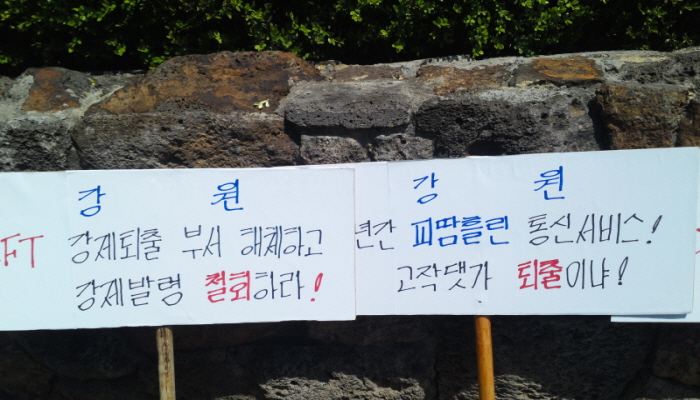 FT
강 원
강제퇴출 부서 해체하고
강제발령 철회하라!
강 원
년간 피땀흘린 통신서비스!
고작댓가 퇴출이냐!